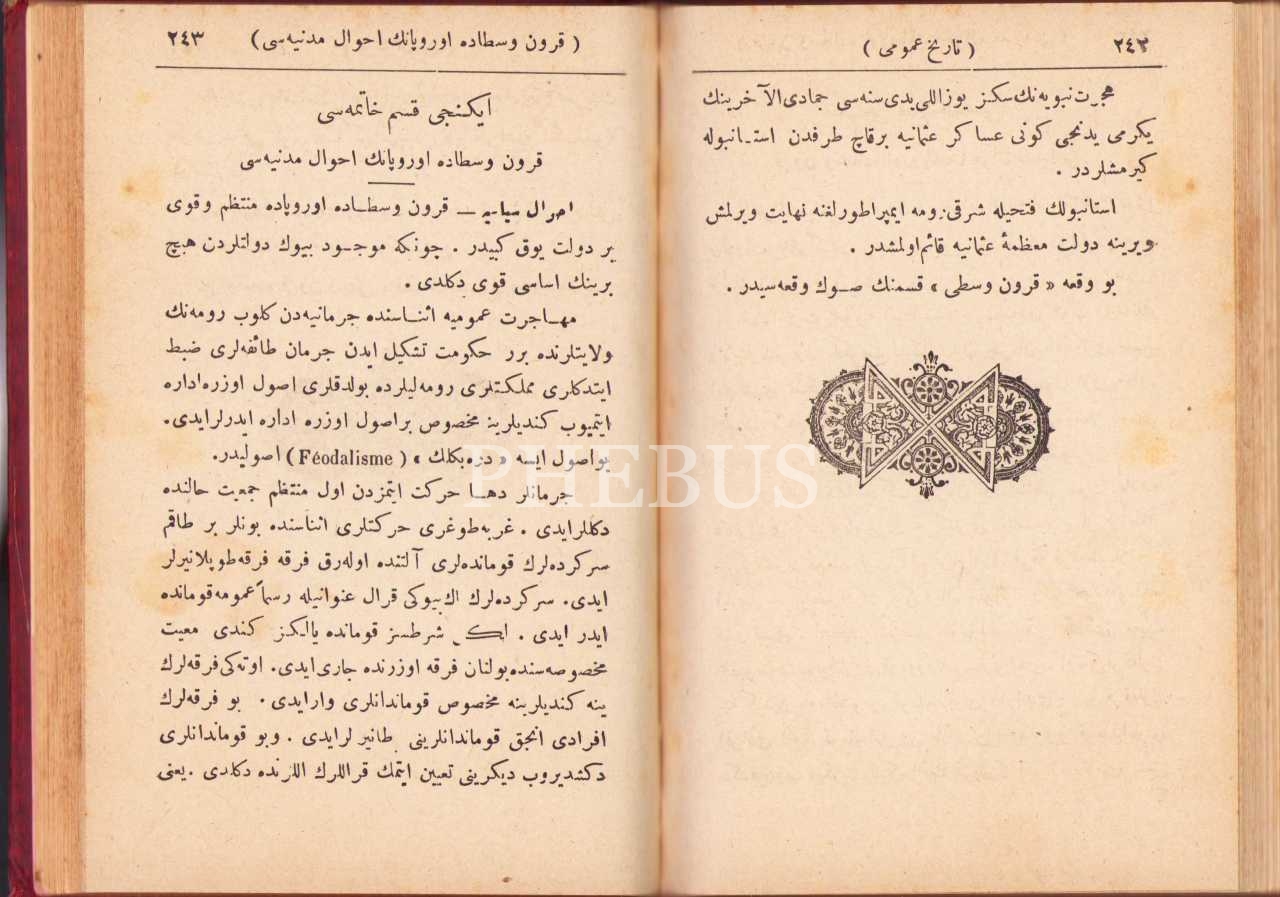 ٢٤٣ ( تاریخ عمومی )
هجرت نبویه‌نك سکز یوز اللی یدی سنه‌سی جمادی الآخرینك
یکرمی یدنجی کونی عساکر عثمانیه برقاچ طرفدن استـانبوله
کیرمشلردر .
استانبولك فتحیله شرقی رومه ایمپراطورلغنه نهایت ویرلمش
ویرینه دولت معظمهٔ عثمانیه قائم اولمشدر .
بو وقعه « قرون وسطی » قسمنك صـوك وقعه‌سیدر .
( قرون وسطاده اوروپانك احوال مدنیه‌سی ) ٢٤٣
ایکنجی قسم خاتمه‌سی
قرون وسطاده اوروپانك احوال مدنیه‌سی
احوال سیاسیه ــ قرون وسطـاده اوروپاده منتظم وقوی
بر دولت یوق کبیدر . چونکه موجـود بیوك دولتلردن هیچ
برینك اساسی قوی دکلدی .
مهـاجرت عمومیه اثنـاسنده جرمانیه‌دن کلوب رومه‌نك
ولایتلرنده برر حکومت تشکیل ایدن جرمان طائفه‌لری ضبط
ایتدکلری مملکتلری رومه‌لیلرده بولدقلری اصول اوزره اداره
ایتمیوب کندیلرینه مخصوص براصول اوزره اداره ایدرلرایدی.
بواصول ایسه « دره‌بکلك » ( Féodalisme ) اصولیدر.
جرمانلر دهـا حرکت ایتمزدن اول منتظم جمعیت حالنده
دکللرایدی . غربه‌طوغری حرکتلری اثناسنده بونلر بر طاقم
سرکرده‌لرك قومانده‌لری آلتنده اوله‌رق فرقه فرقه‌طوپلانیرلر
ایدی. سرکرده‌لرك اك‌بیوکی قرال عنوانیله رسماً عمومه‌قومانده
ایدر ایدی . شرطسز قومانده یالکز کندی معیت
مخصوصه‌سنده بولنان فرقه اوزرنده جاری ایدی. اوته‌کی فرقه‌لرك
ینه کندیلرینه مخصوص قوماندانلری وارایدی . بو فرقه‌لرك
افرادی انجق قوماندانلرینی طانیرلرایدی . وبو قوماندانلری
دکشدیروب دیکرینی تعیین ایتمك قراللرك اللرنده دکلدی . یعنی
PHEBUS